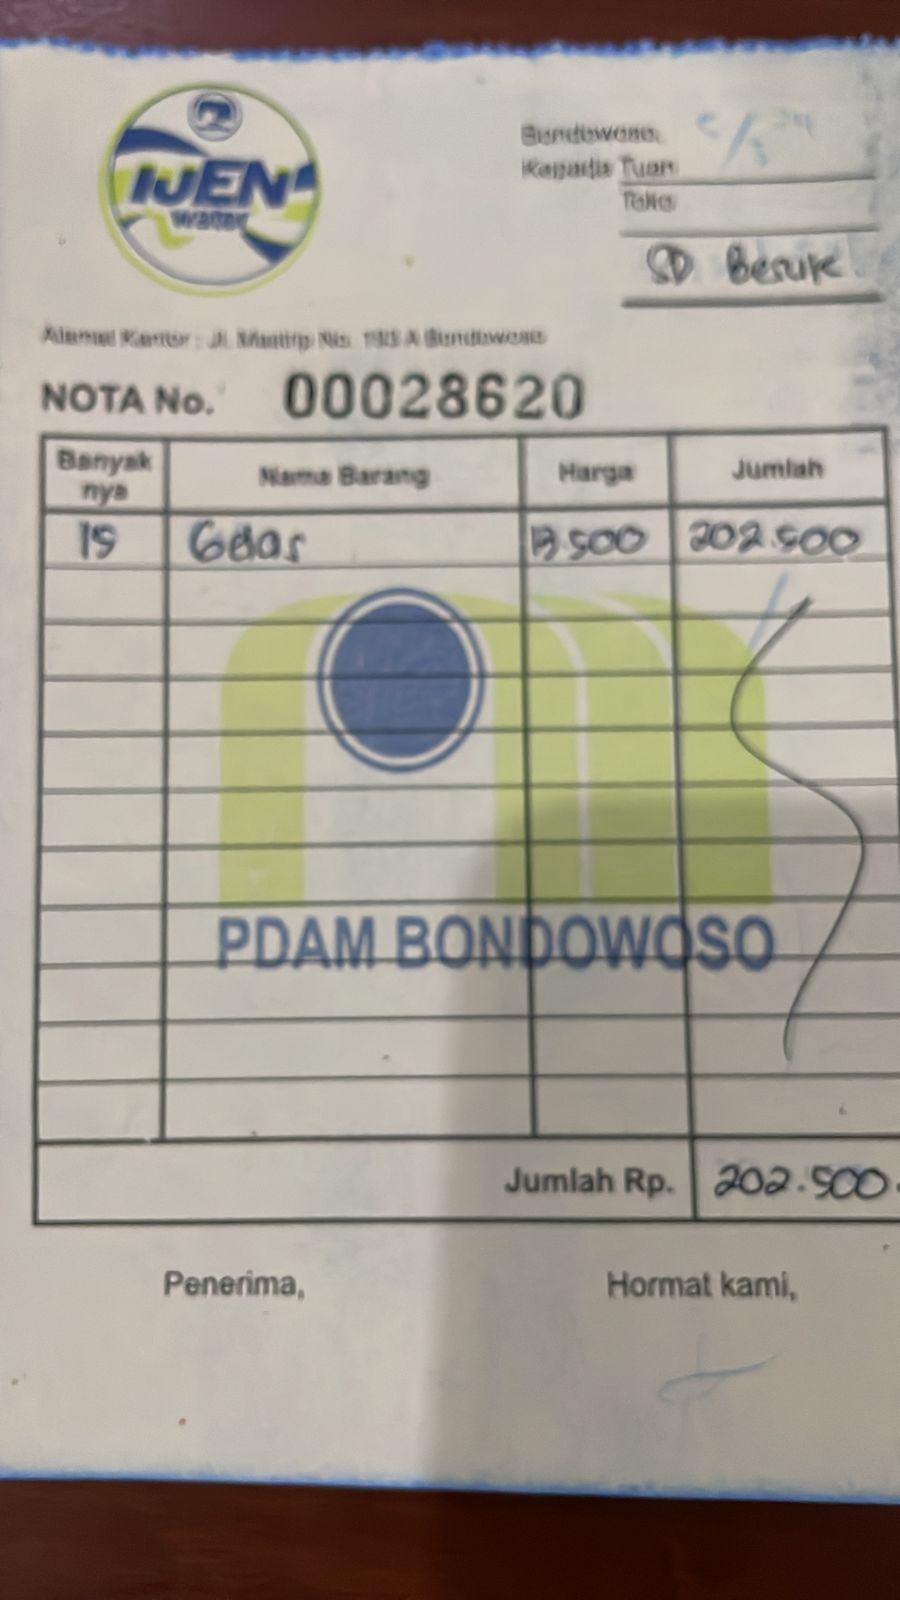 IJEN
Water
Bondowoso,
Kepada Tuan
Toko
SD Besuk
Alamat Kantor : Jl. Mastrip No. A Bondowoso
NOTA No. 00028620
Banyak nya Nama Barang Harga Jumlah
15 Gelas 13.500 202.500
PDAM BONDOWOSO
Jumlah Rp. 202.500
Penerima, Hormat kami,